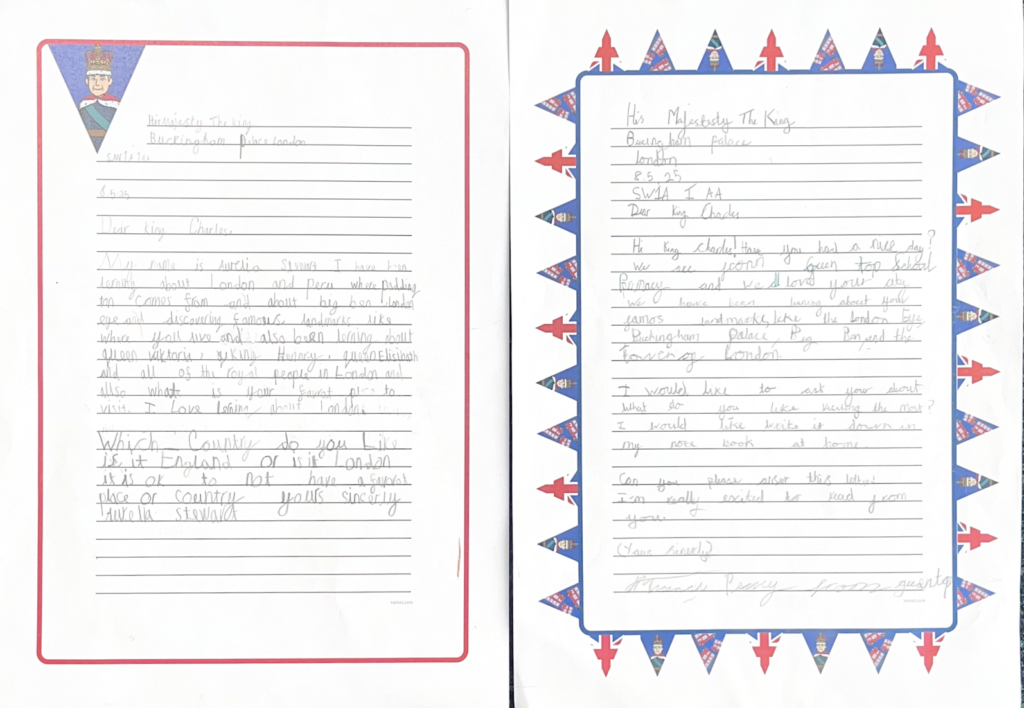 His Majesty The King
Buckingham palace london
8.5.25
Dear King Charles
My name is Aurelia Stewart I have been
lerning about London and peru where padding
ton comes from and about big ben london
eye and discovering famous landmarks like
where you live and also been lerning about
queen viktoria, Henary, queen Elisibeth
and all of the royal people in London and
allso what is your favrat place to
visit. I Love lerning about london.
Which Country do you Like
is it England or is it London
it is ok to not have a favrat
place or country yours sincerly
Aurelia Stewart
His Majestisty The King
Bucingham Palace
london
8.5.25
SW1A 1 AA
Dear King Charles
Hi King charles! Have you had a nice day?
We are from Green top School
and we love your city
We have been lurning about your
famos landmarks, like the London Eye,
Buckingham Palace, Big Ben, and the
Tower of London.
I would like to ask you about
What do you like viewing the most?
I would like write it down in
my note book at home.
Can you please anser this letter?
I'm really excited to read from
you.